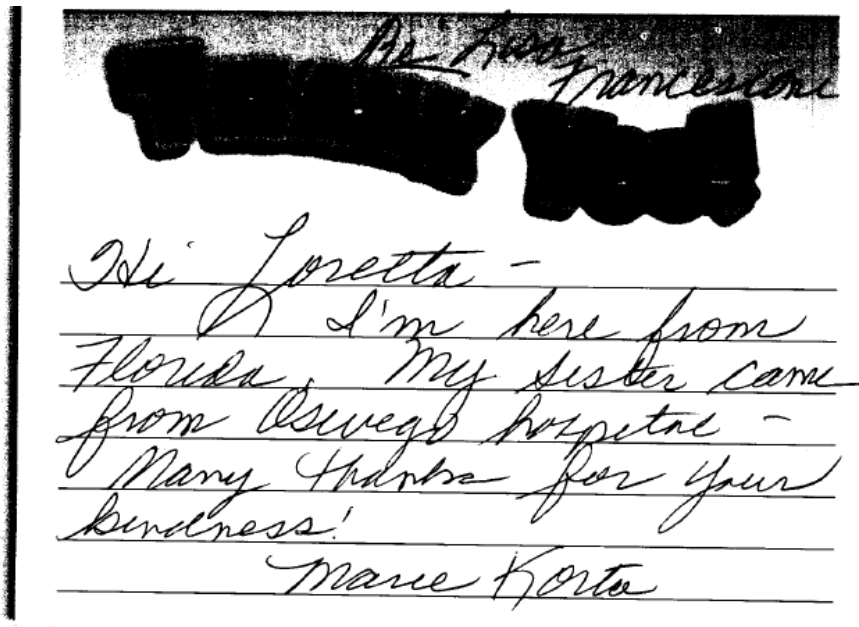 Re: Lisa
Francesconi
Hi Loretta -
I'm here from
Florida. My sister came
from Oswego hospital -
Many thanks for your
kindness!
Marie Korta